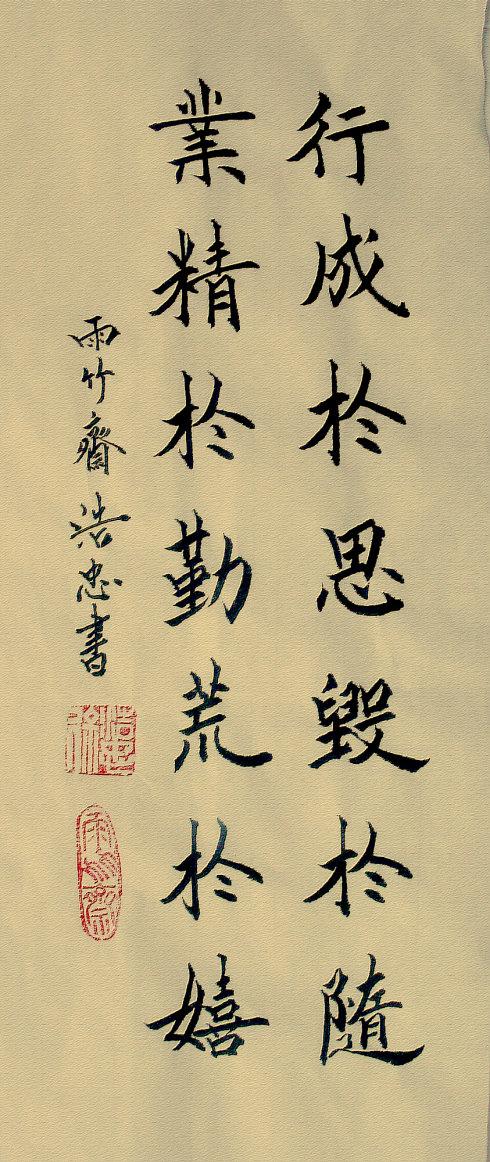 行成於思毀於隨
業精於勤荒於嬉
雨竹齋浩忠書
雨竹齋